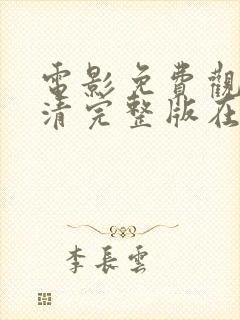 電影免費觀
清完整版在
李長雲